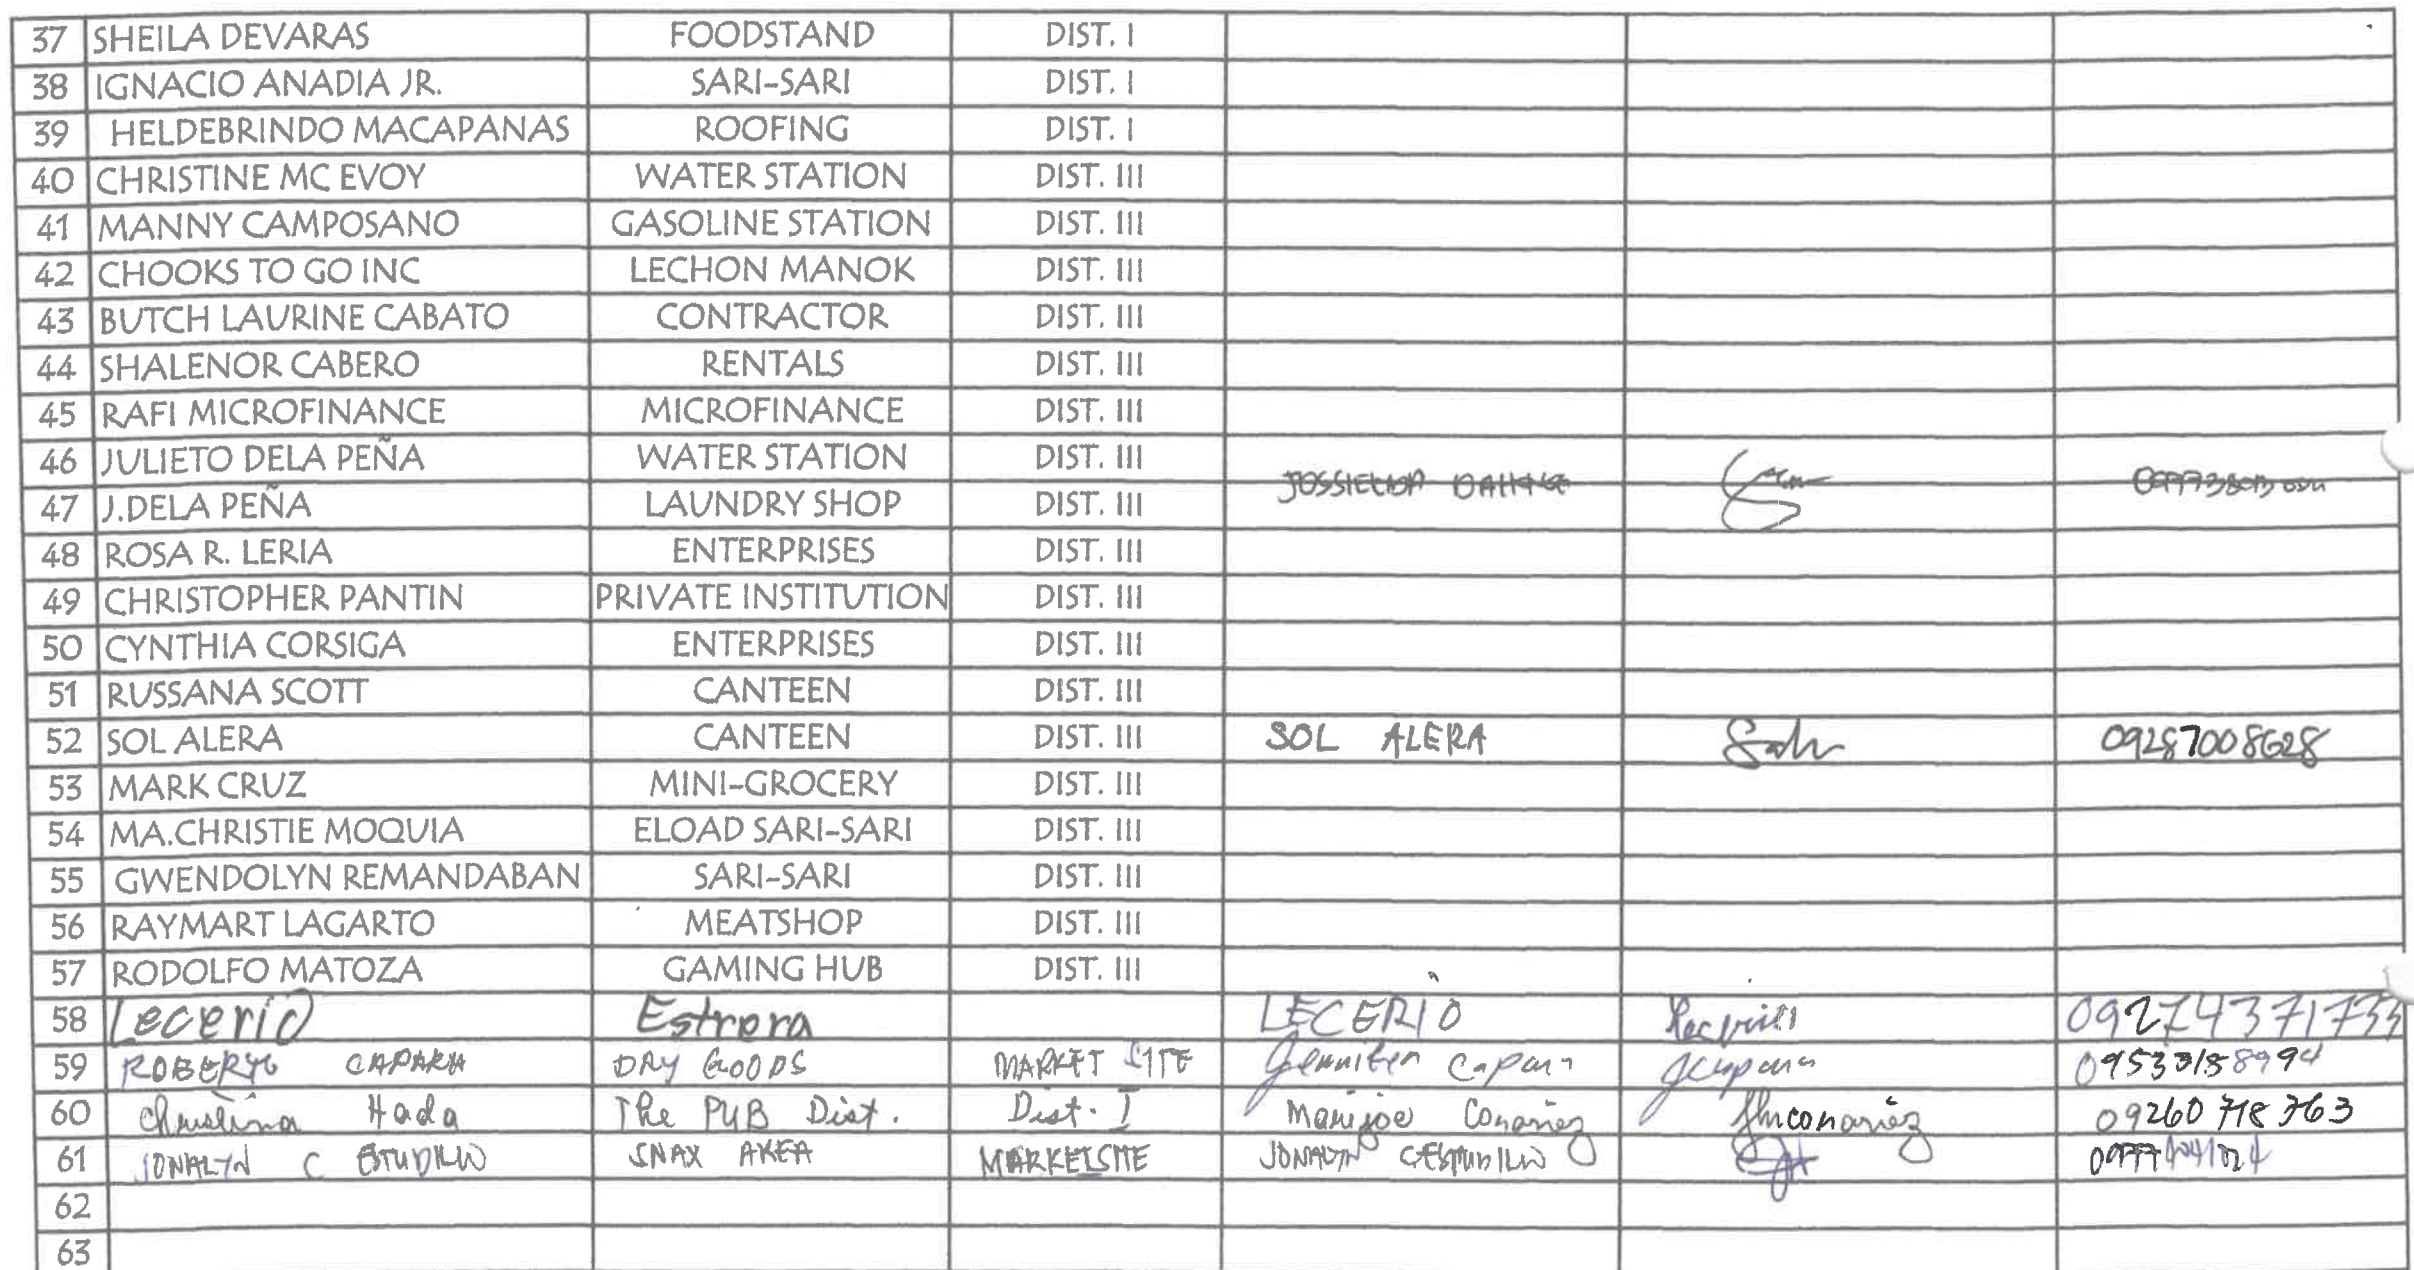 37 SHEILA DEVARAS FOODSTAND DIST. I
38 IGNACIO ANADIA JR. SARI-SARI DIST. I
39 HELDEBRINDO MACAPANAS ROOFING DIST. I
40 CHRISTINE MC EVOY WATER STATION DIST. III
41 MANNY CAMPOSANO GASOLINE STATION DIST. III
42 CHOOKS TO GO INC LECHON MANOK DIST. III
43 BUTCH LAURINE CABATO CONTRACTOR DIST. III
44 SHALENOR CABERO RENTALS DIST. III
45 RAFI MICROFINANCE MICROFINANCE DIST. III
46 JULIETO DELA PEÑA WATER STATION DIST. III
47 J.DELA PEÑA LAUNDRY SHOP DIST. III
48 ROSA R. LERIA ENTERPRISES DIST. III
49 CHRISTOPHER PANTIN PRIVATE INSTITUTION DIST. III
50 CYNTHIA CORSIGA ENTERPRISES DIST. III
51 RUSSANA SCOTT CANTEEN DIST. III
52 SOL ALERA CANTEEN DIST. III SOL ALERA 09287008628
53 MARK CRUZ MINI-GROCERY DIST. III
54 MA.CHRISTIE MOQUIA ELOAD SARI-SARI DIST. III
55 GWENDOLYN REMANDABAN SARI-SARI DIST. III
56 RAYMART LAGARTO MEATSHOP DIST. III
57 RODOLFO MATOZA GAMING HUB DIST. III
58 Lecerio Estrera LECERIO 09274371733
59 ROBERTO DRY GOODS MARKET SITE Jennifer
60 Christina Hada The PUB Dist. Dist. I Marijoe 09260718763
61 JONALYN C ESTUDILLO SNAX AREA MARKETSITE JONALYN C ESTUDILLO
62
63